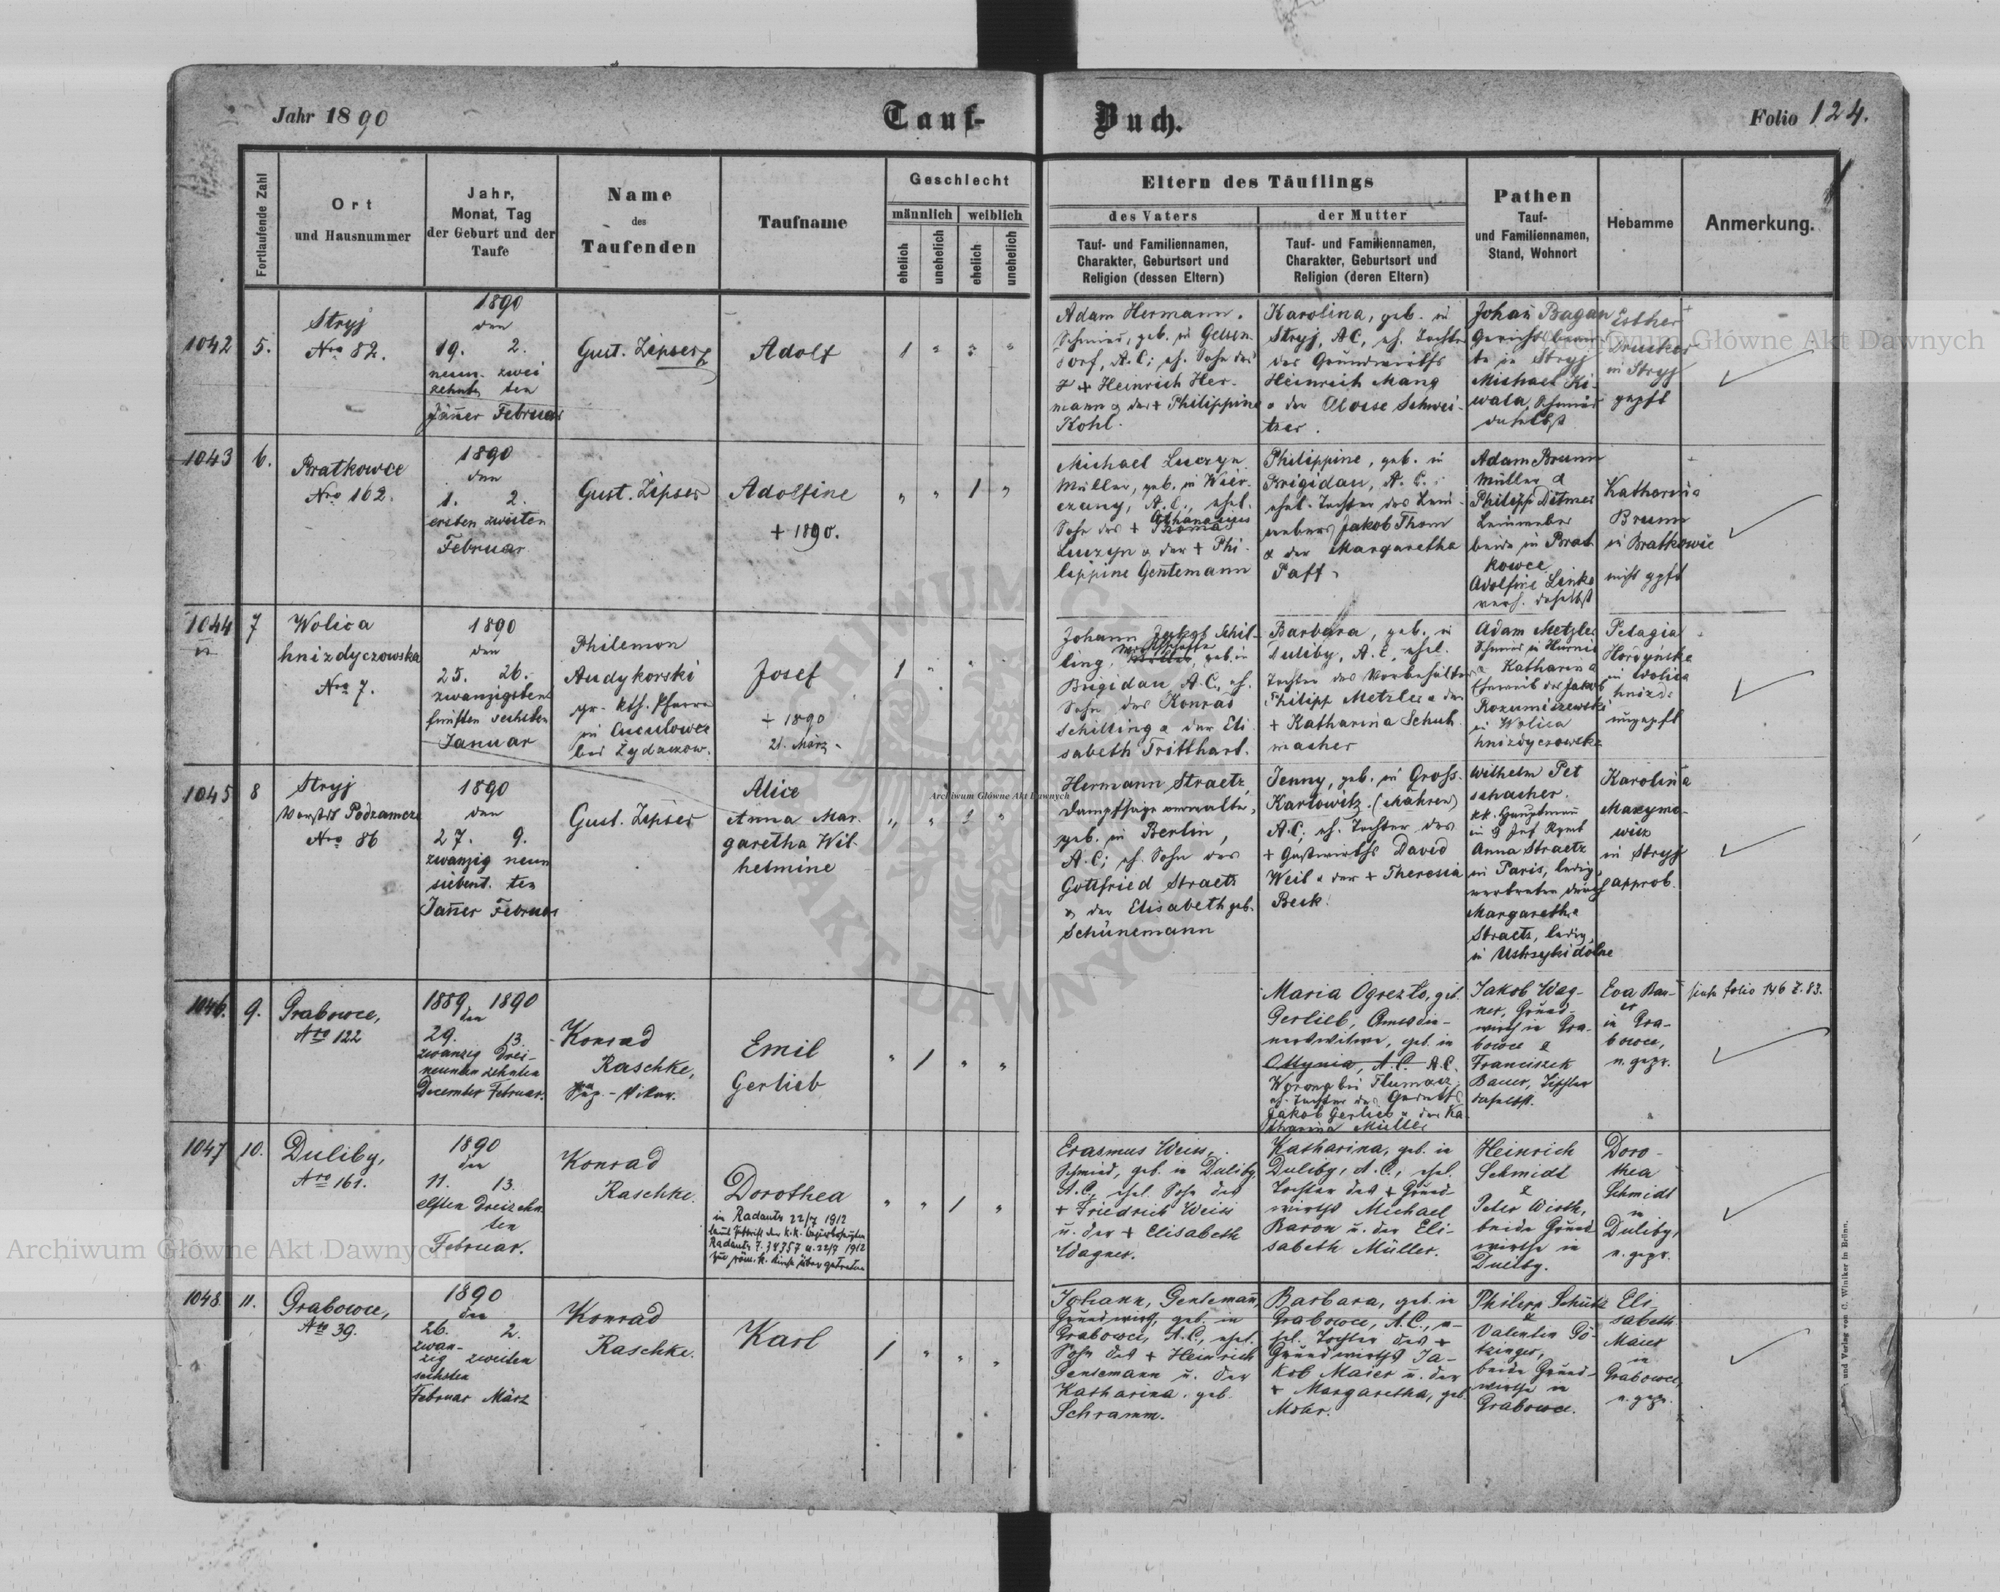 Jahr 1890
Tauf-
Buch.
Folio 124.
Fortlaufende Zahl
Ort
und Hausnummer
Jahr,
Monat, Tag
der Geburt und der
Taufe
Name
des
Taufenden
Taufname
Geschlecht
männlich
weiblich
ehelich
unehelich
ehelich
unehelich
Eltern des Täuflings
des Vaters
der Mutter
Tauf- und Familiennamen,
Charakter, Geburtsort und
Religion (dessen Eltern)
Tauf- und Familiennamen,
Charakter, Geburtsort und
Religion (deren Eltern)
Pathen
Tauf-
und Familiennamen,
Stand, Wohnort
Hebamme
Anmerkung.
1042
5.
Stryj
Nro 82.
1890
den
19. 2.
neun- zwei
zehnten ten
Jänner Februar
Gust. Zipser
Adolf
1
Adam Hermann,
Schmied, geb. in Gelsen-
dorf, A.C; eh. Sohn des
+ Heinrich Her-
mann & der + Philippine
Kohl.
Karolina, geb. in
Stryj, AC, eh. Tochter
des Grundwirths
Heinrich Mang
& der Aloise Schwei-
tzer.
Johan Bagan
te in Stryj
Michael Ki-
wala, Schmied
daselbst
Esther
Drucker
in Stryj
gepft
1043
6.
Bratkowce
Nro 162.
1890
den
1. 2.
ersten zweiten
Februar
Gust. Zipser
Adolfine
+ 1890.
1
Michael Luczyn
Müller, geb. in Wier-
czany, A.C., ehel.
Sohn des + Thomas
Athanasius
Luczyn & der + Phi-
lippine Gentemann
Philippine, geb. in
Brigidau, A.C.;
ehel. Tochter des Lein-
webers Jakob Thom
& der Margaretha
Paff.
Adam Brunn
Müller &
Philipp Ditmer
Leinweber
beide in Brat
kowce
Adolfine Linke
verh. daselbst
Katharina
Brunn
in Bratkowce
nicht gpft
1044
7
Wolica
hnizdyczowska
Nro 7.
1890
den
25. 26.
zwanzigsten
fünften sechsten
Januar
Philemon
Andykorski
gr. kth. Pfarrer
in Cuculowce
bei Zydaczow.
Josef
+ 1890
21. März
1
Johann Jakob Schil-
ling, geb. in
Brigidau A.C, eh.
Sohn des Konrad
Schilling & der Eli
sabeth Tritthart.
Barbara, geb. in
Duliby, A.C, ehel.
Tochter des
Philipp Metzler & der
+ Katharina Schuh
macher
Adam Metzler
Schmied in
& Katharina
Eheweib des Jakob
Rozumiszewski
in Wolica
hnizdyczowska
Pelagia
in Wolica
hnizd.
ungepft
1045
8
Stryj
Vorstdt Podzamcze
Nro 86
1890
den
27. 9.
zwanzig neun
siebent. ten
Jäner Februar
Gust. Zipser
Alice
Anna Mar-
garetha Wil-
helmine
1
Hermann Straetz,
Dampfsägeverwalter,
geb. in Berlin,
A.C; eh. Sohn des
Gottfried Straetz
& der Elisabeth geb.
Schünemann
Jenny, geb. in Gross-
Karlowitz (Mähren)
A.C; eh. Tochter des
+ Gastwirths David
Weil & der + Theresia
Beck.
Wilhelm Pet
schacher
kk. Hauptmann
in 9 Inf Rgmt
Anna Straetz
in Paris, ledig,
vertreten durch
Margarethe
Straetz, ledig,
in Ustrzyki dolne
Karolina
Maxymo-
wicz
in Stryj
approb.
1046.
9.
Grabowce,
Nro 122
1889. 1890
den
29. 13.
zwanzig Drei-
neunten zehnten
December Februar.
Konrad
Raschke,
Emil
Gerlieb
1
Maria Ogrezlo, geb.
Gerlieb, Amtsdie-
nerswitwe, geb. in
Ottynia, A.C. A.C.
Worona bei Tlumacz,
eh. Tochter des
Jakob Gerlieb u. der Ka
tharina Müller
Jakob Wag-
ner, Grund-
wirth in Gra-
bowce &
Franciszek
Bauer, Tischler
daselbst.
Eva Bau-
er
in Gra-
bowce,
n. gepr.
siehe folio 146 Z. 83.
1047
10.
Duliby,
Nro 161.
1890
den
11. 13.
elften Dreizehn-
ten
Februar.
Konrad
Raschke.
Dorothea
in Radautz 22/7 1912
laut Zuschrift der k.k. Bezirkshauptm
Radautz Z. 34757 v. 22/7 1912
zur röm. k. Kirche übergetreten
1
Erasmus Weiss,
Schmied, geb. in Duliby,
A.C., ehel. Sohn des
+ Friedrich Weiss
u. der + Elisabeth
Wagner.
Katharina, geb. in
Duliby, A.C., ehel.
Tochter des + Grund-
wirths Michael
Baron u. der Eli-
sabeth Müller.
Heinrich
Schmidt
&
Peter Wirth,
beide Grund
wirthe in
Duliby.
Doro-
thea
Schmidt
in
Duliby,
n. gepr.
1048.
11.
Grabowce,
Nro 39.
1890
den
26. 2.
zwan-
zig zweiten
sechsten
Februar März
Konrad
Raschke.
Karl
1
Johann, Gentemann,
Grundwirt, geb. in
Grabowce, A.C., ehel.
Sohn des + Heinrich
Gentemann u. der
Katharina, geb.
Schramm.
Barbara, geb. in
Grabowce, A.C., e-
hel. Tochter des +
Grundwirths Ja-
kob Maier u. der
+ Margaretha, geb.
Mohr.
Philipp Schütz
&
Valentin Gö-
tzinger,
beide Grund-
wirthe in
Grabowce.
Eli
sabeth
Maier
in
Grabowce,
n. gepr.
und Verlag von C. Winiker in Brünn.
Archiwum Główne Akt Dawnych
Archiwum Główne Akt Dawnych
Archiwum Główne Akt Dawnych
ARCHIWUM GŁÓWNE AKT DAWNYCH